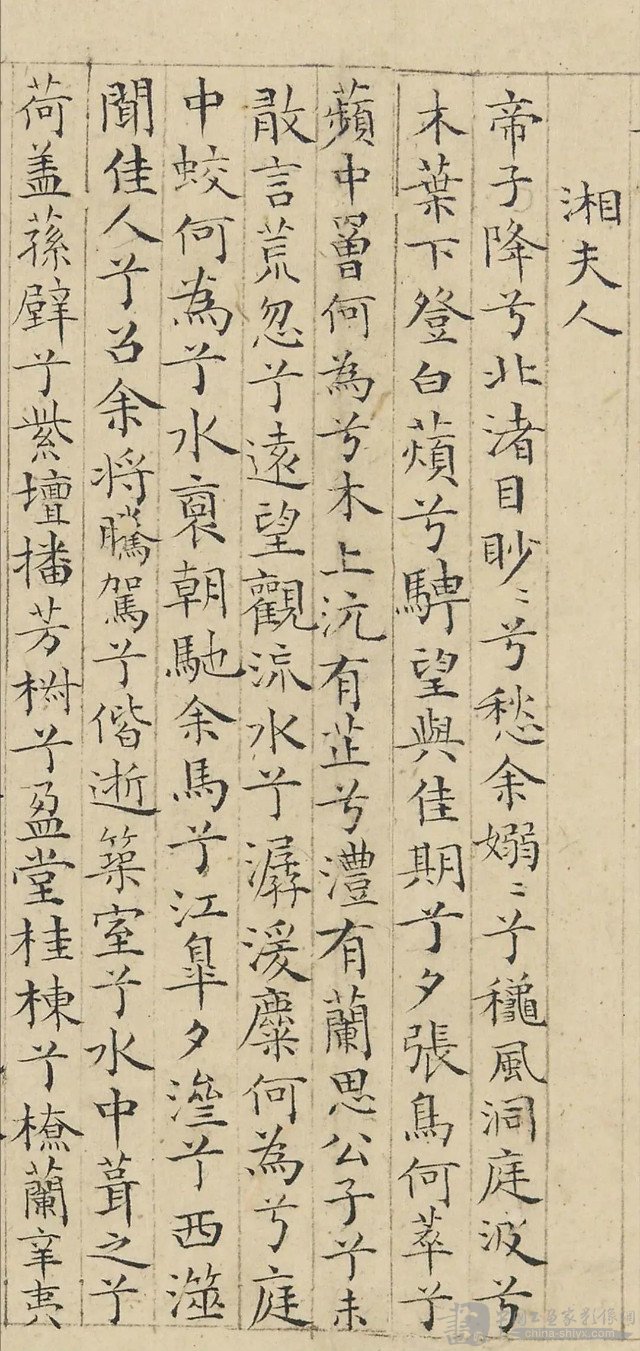 湘夫人
帝子降兮北渚目眇〻兮愁余嫋〻兮龝風洞庭波兮
木葉下登白薠兮騁望與佳期兮夕張鳥何萃兮
蘋中罾何為兮木上沅有芷兮澧有蘭思公子兮未
敢言荒忽兮遠望觀流水兮潺湲麋何為兮庭
中蛟何為兮水裔朝馳余馬兮江臯夕濟兮西澨
聞佳人兮召余將騰駕兮偕逝築室兮水中葺之兮
荷盖蓀壁兮紫壇播芳椒兮盈堂桂棟兮橑蘭辛夷
china-shiyx.com